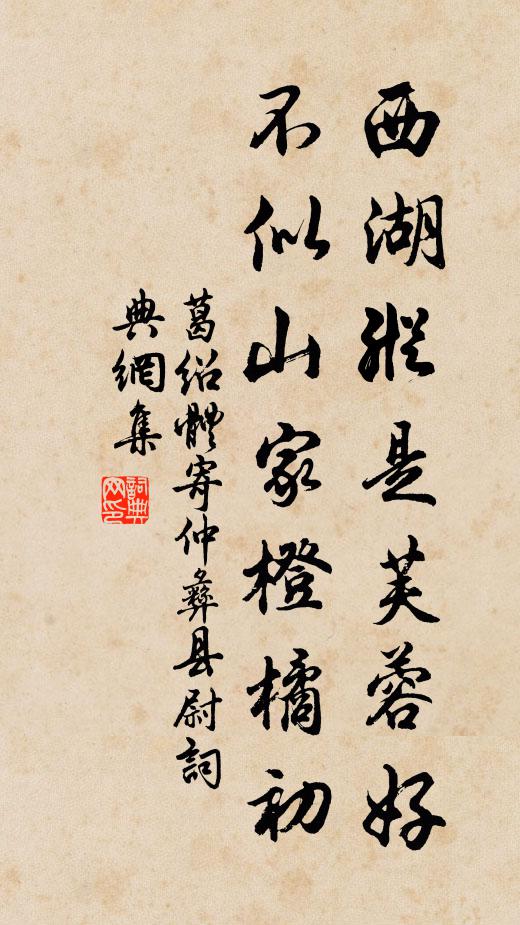 西湖縱是芙蓉好
不似山家橙橘初
葛绍體寄仲彝县尉詞
典網集
詞典網印